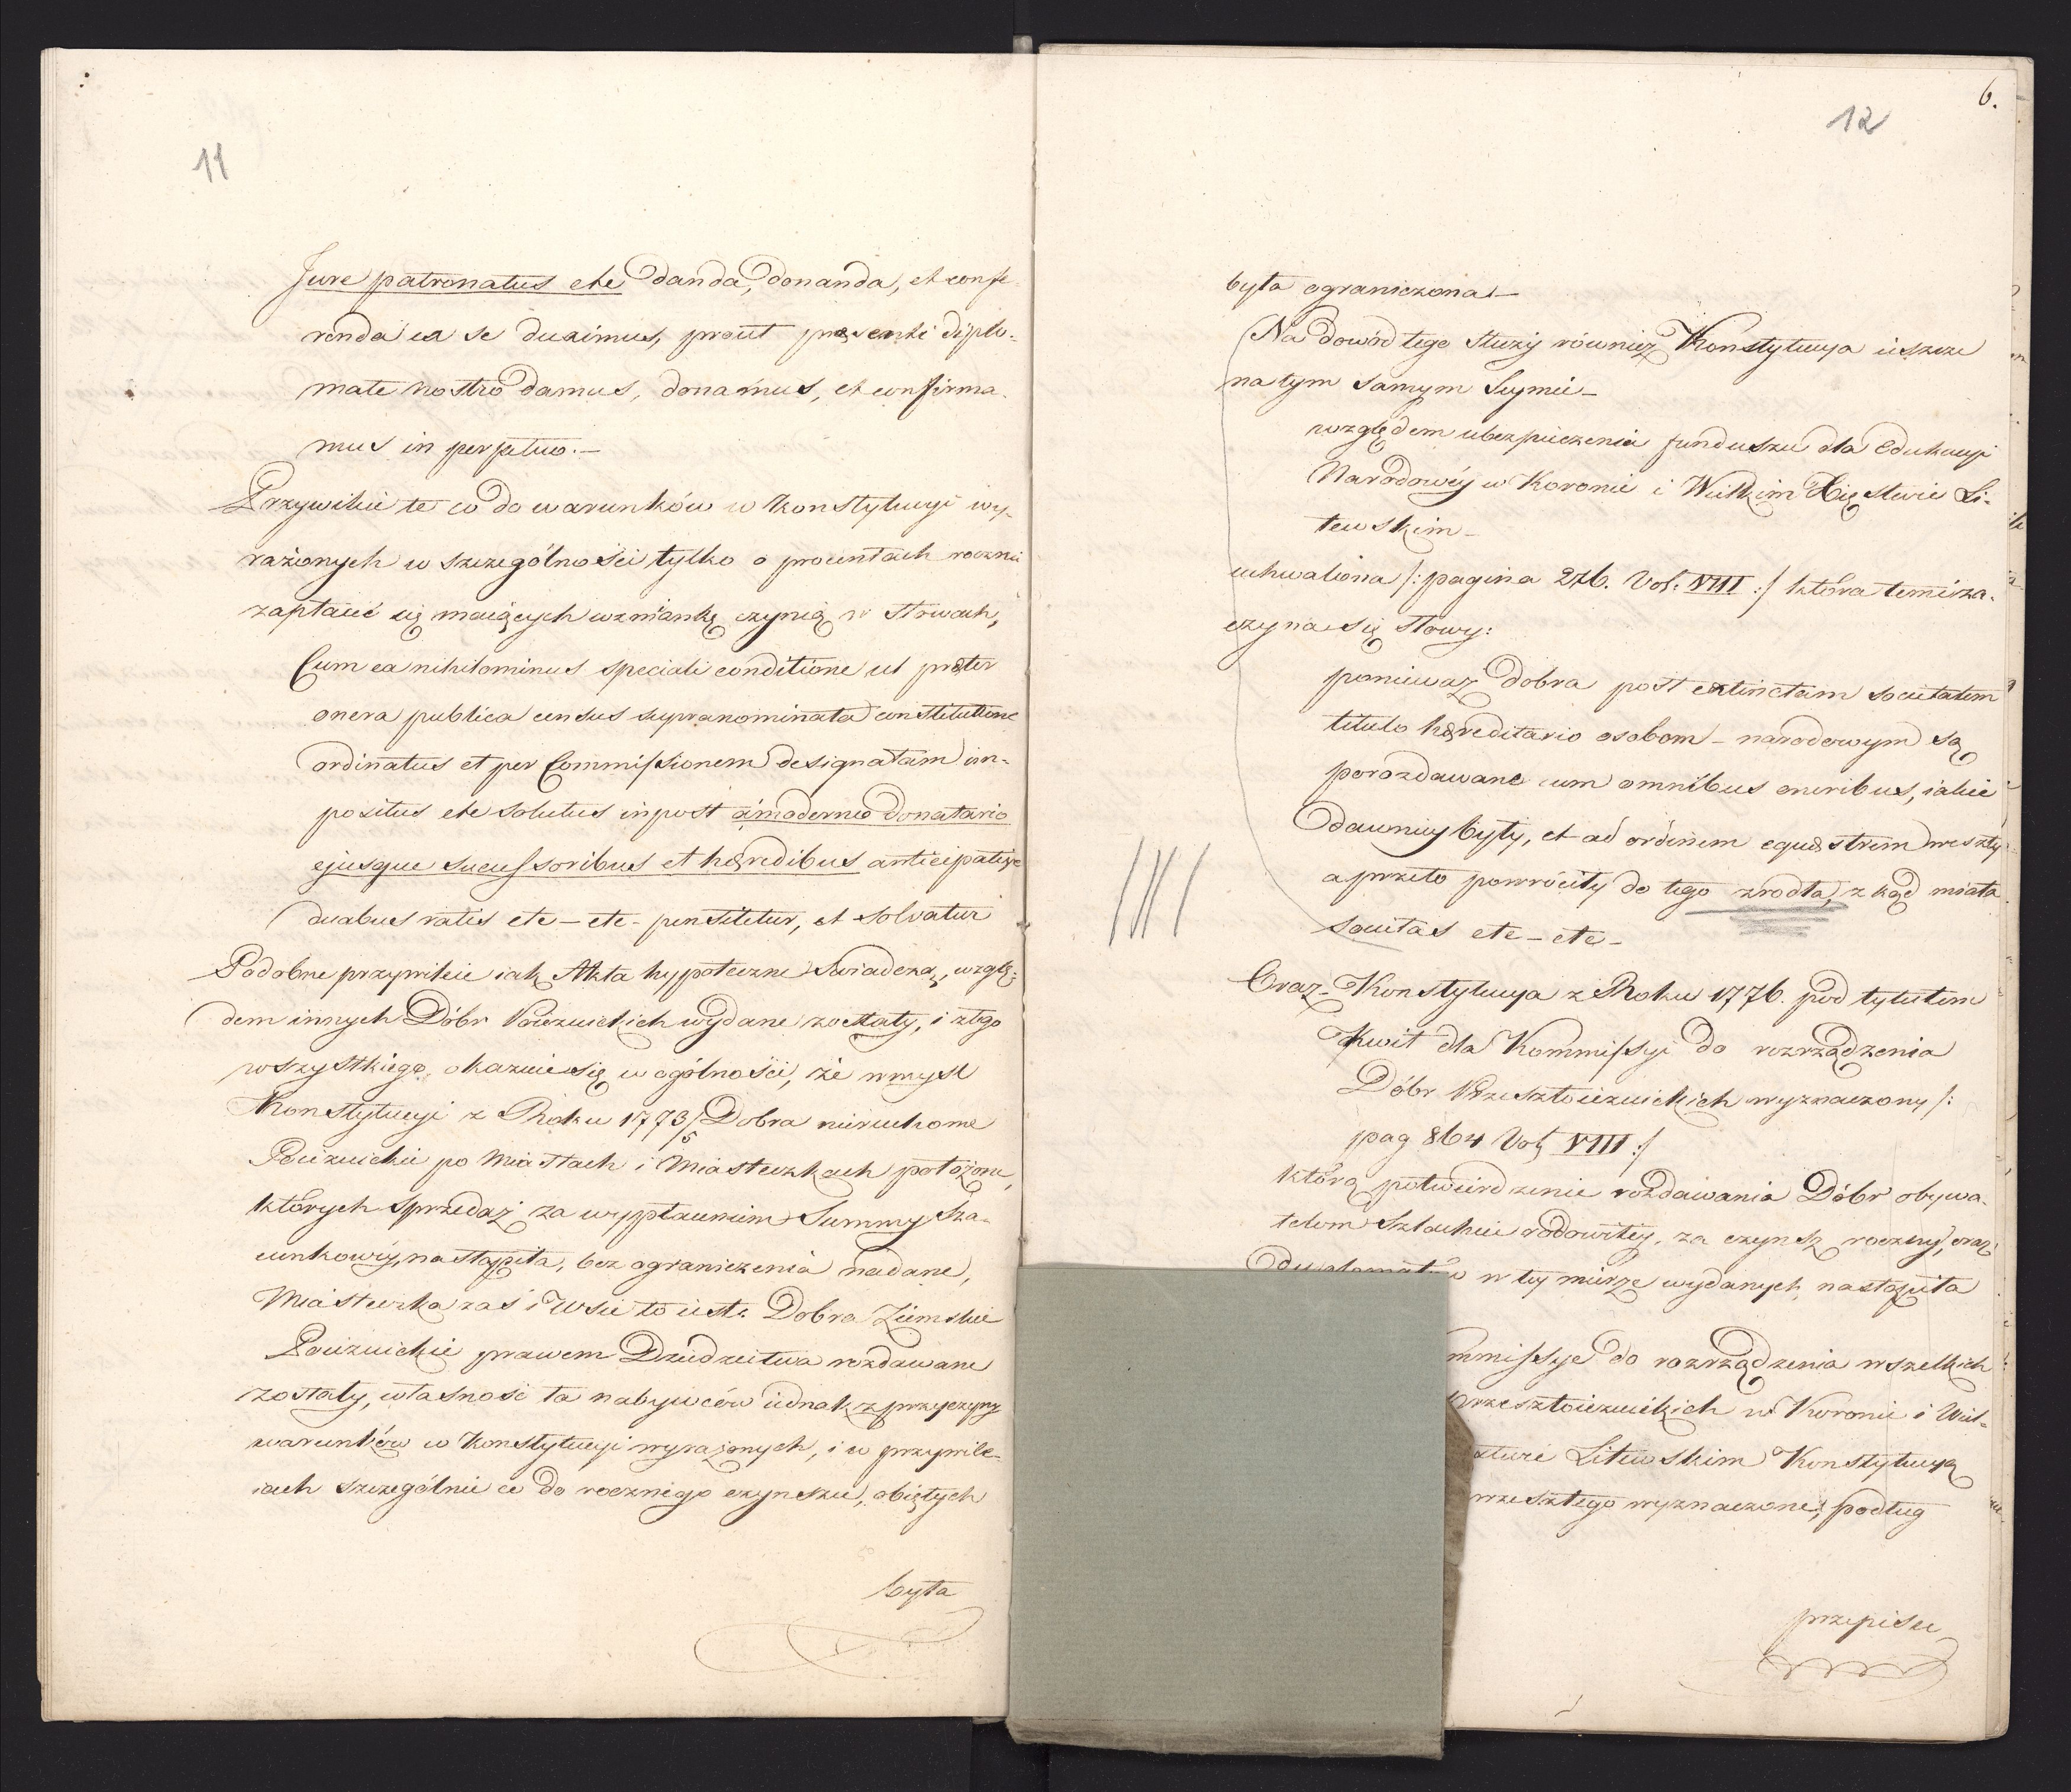 11
Jure patronatus etc danda, donanda, et confe-
renda ea se duximus, prout præsenti diplo-
mate nostro damus, donamus, et confirma-
mus in perpetuo.—
Przywileie te co do warunków w Konstytucyi wy-
rażonych w szczególności tylko o procentach rocznie
zapłacić się maiących wzmiankę czynią w słowach,
Cum ea nihilominus speciali conditione ut præter
onera publica census supranominata constitutione
ordinatus et per Commissionem designatam im-
positus etc solutus inpost a moderno Donatario
ejusque successoribus et hæredibus anticipative
duabus ratis etc — etc - pensitetur, et solvatur
Podobne przywileie iak Akta hypoteczne swiadczą, wzglę-
dem innych Dóbr Poiezuickich wydane zostały, i z tego
wszystkiego okazuie się w ogólności, że w myśl
Konstytucyi z Roku 1773/5 Dobra nieruchome
Poiezuickie po Miastach i Miasteczkach położone,
których sprzedaż za wypłaceniem Summy Sza-
cunkowéy, nastąpiła, bez ograniczenia nadane,
Miasteczka zaś i Wsie to iest: Dobra Ziemskie
Poiezuickie prawem Dziedzictwa rozdawane
zostały, własność ta nabywców iednak z przyczyny
warunków w Konstytucyi wyrażonych, i w przywile-
iach szczególnie co do rocznego czynszu, obiętych
była
6.
12
była ograniczona.—
Na dowód tego służy również Konstytucya ieszcze
na tym samym Seymie —
względem ubezpieczenia funduszu dla Edukacyi
Narodowéy w Koronie i Wielkim Xięstwie Li-
tewskim —
uchwalona /: pagina 276. Vol. VIII :/ która temi za-
czyna się słowy:
ponieważ dobra post extinctam societatem
titulo hæreditario osobom — narodowym są
porozdawane cum omnibus oneribus, iakie
dawniey były, et ad ordinem equestrem weszły
a przeto powróciły do tego zrodła, z kąd miała
societas etc — etc —
Oraz Konstytucya z Roku 1776. pod tytułem
Kwit dla Kommissyi do rozrządzenia
Dóbr Przeszłoiezuickich wyznaczony /:
pag 864 Vol VIII :/
którą potwierdzenie rozdawania Dóbr obywa-
telom Szlachcie rodowitey, za czynsz roczny, oraz
w tey mierze wydanych nastąpiła
mmissye do rozrządzenia wszelkich
przeszłoiezuickich w Koronie i Wiel-
stwie Litewskim Konstytucyą
przeszłego wyznaczone, podług
przepisu